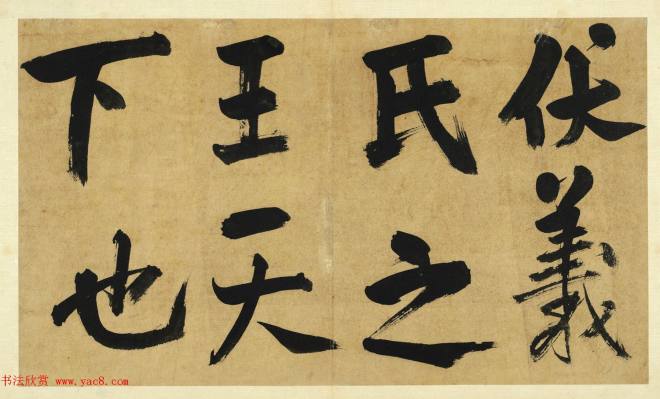 伏羲
氏之
王天
下也
书法欣赏 www.yac8.com